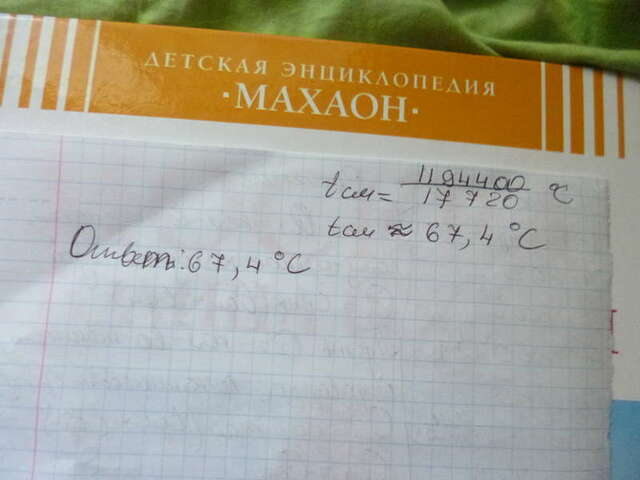 ДЕТСКАЯ ЭНЦИКЛОПЕДИЯ
·МАХАОН·
tсм= 1194400/17720 °C
tсм ≈ 67,4 °C
Ответ: 67,4 °C